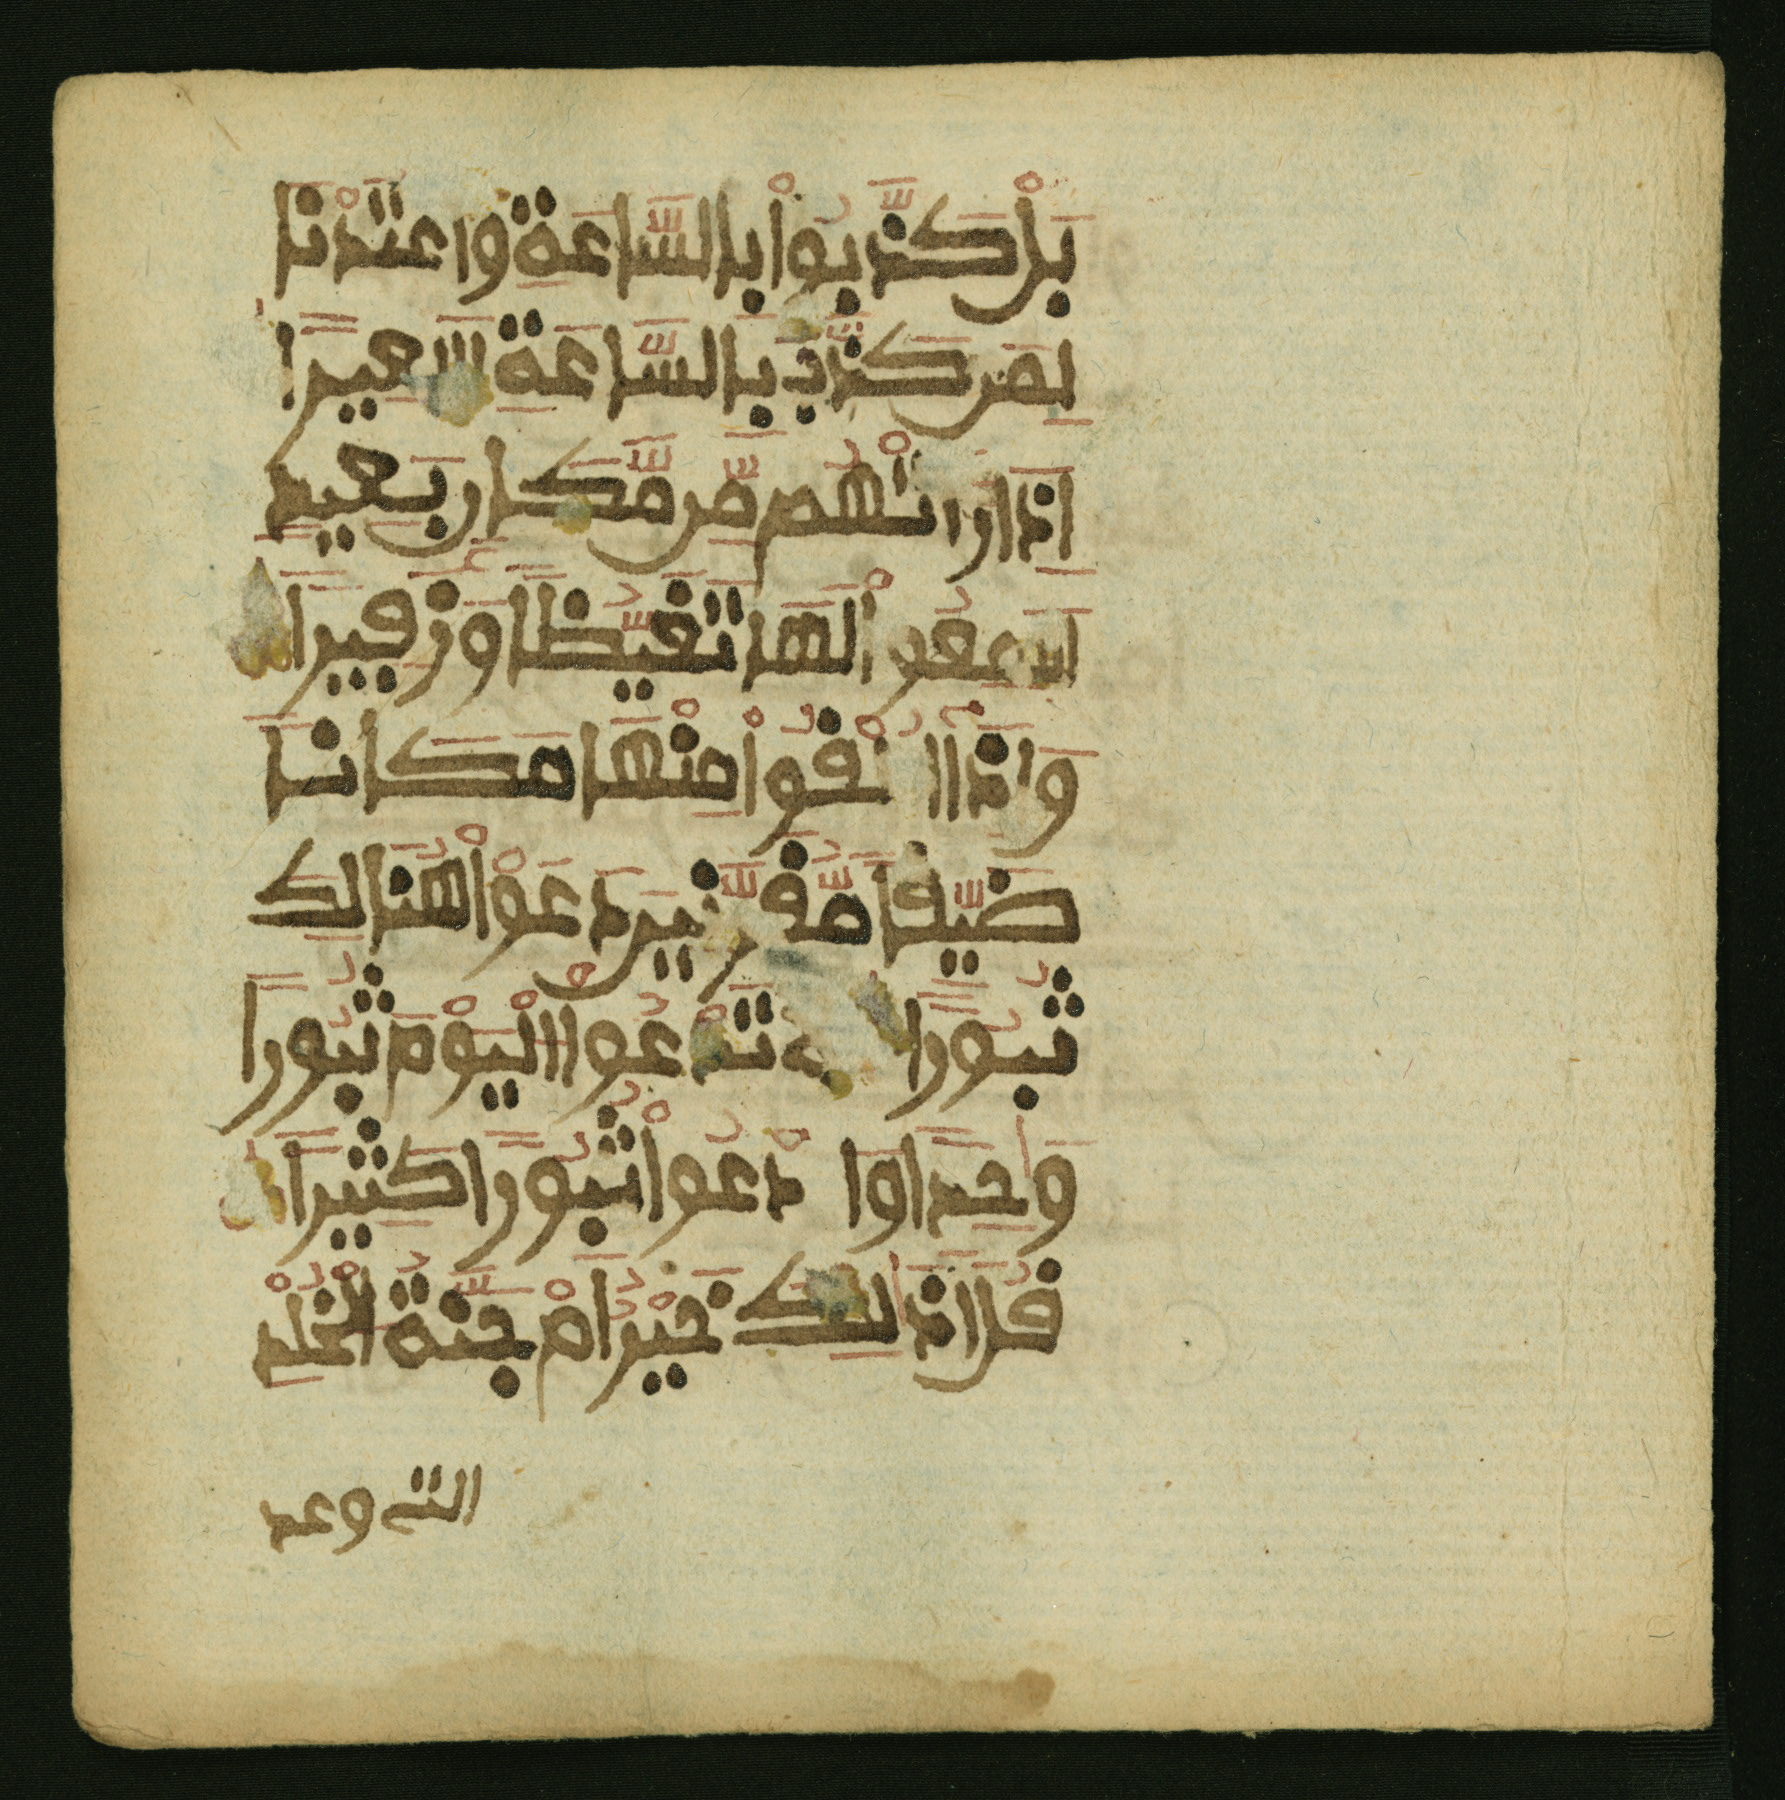 بَلْ كَذَّبُواْ بِالسَّاعَةِ وَاعْتَدْنَا
لِمَن كَذَّبَ بِالسَّاعَةِ سَعِيرًا
اِذَا رَاَتْهُم مِّن مَّكَانٍ بَعِيدٍ
سَمِعُواْ لَهَا تَغَيُّظًا وَزَفِيرًا
وَإِذَا أُلْقُواْ مِنْهَا مَكَانًا
ضَيِّقًا مُّقَرَّنِينَ دَعَوْاْ هُنَالِكَ
ثُبُورًا تَدْعُواْ الْيَوْمَ ثُبُورًا
وَاحِدًا وَادْعُواْ ثُبُورًا كَثِيرًا
قُلَ اَذَالِكَ خَيْرٌ اَمْ جَنَّةُ الْخُلْدِ
التى وعد